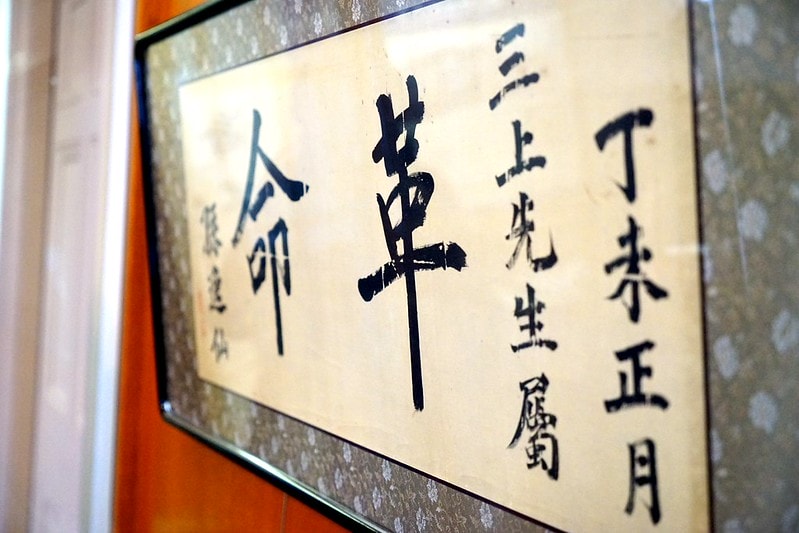 丁未正月
三上先生屬
革
命
孫逸仙